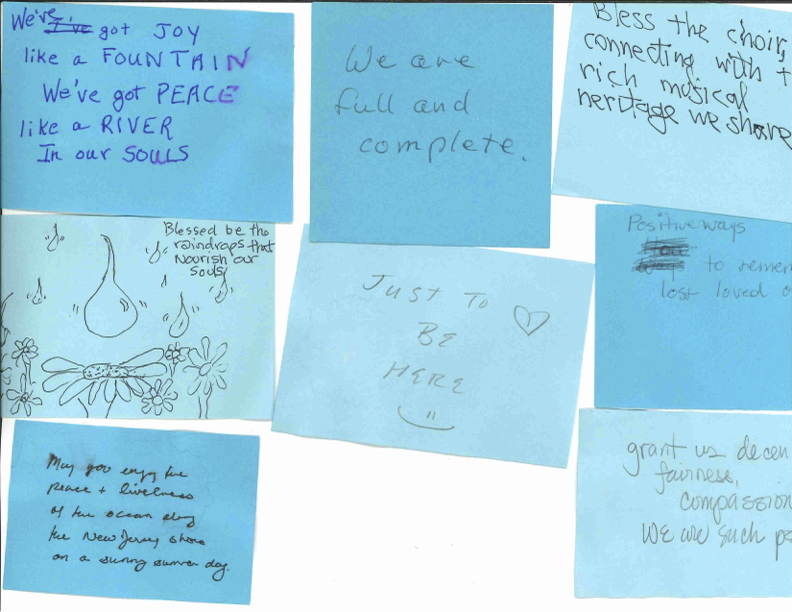 We've got JOY
like a FOUNTAIN
We've got PEACE
like a RIVER
In our SOULS
We are
full and
complete.
Bless the choir,
connecting with t
rich musical
heritage we share
Blessed be the
raindrops that
nourish our
souls
JUST TO
BE
HERE
Positive ways
to remem
lost loved o
May you enjoy the
peace + liveliness
of the ocean along
the New Jersey shore
on a sunny summer day.
grant us decen
fairness,
compassion
we are such p